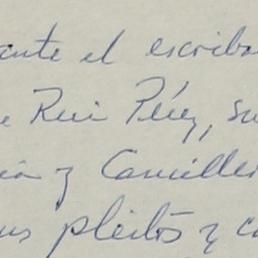 ante el escriba
e Rui Pérez, su
y Camiller
us pleitos y co